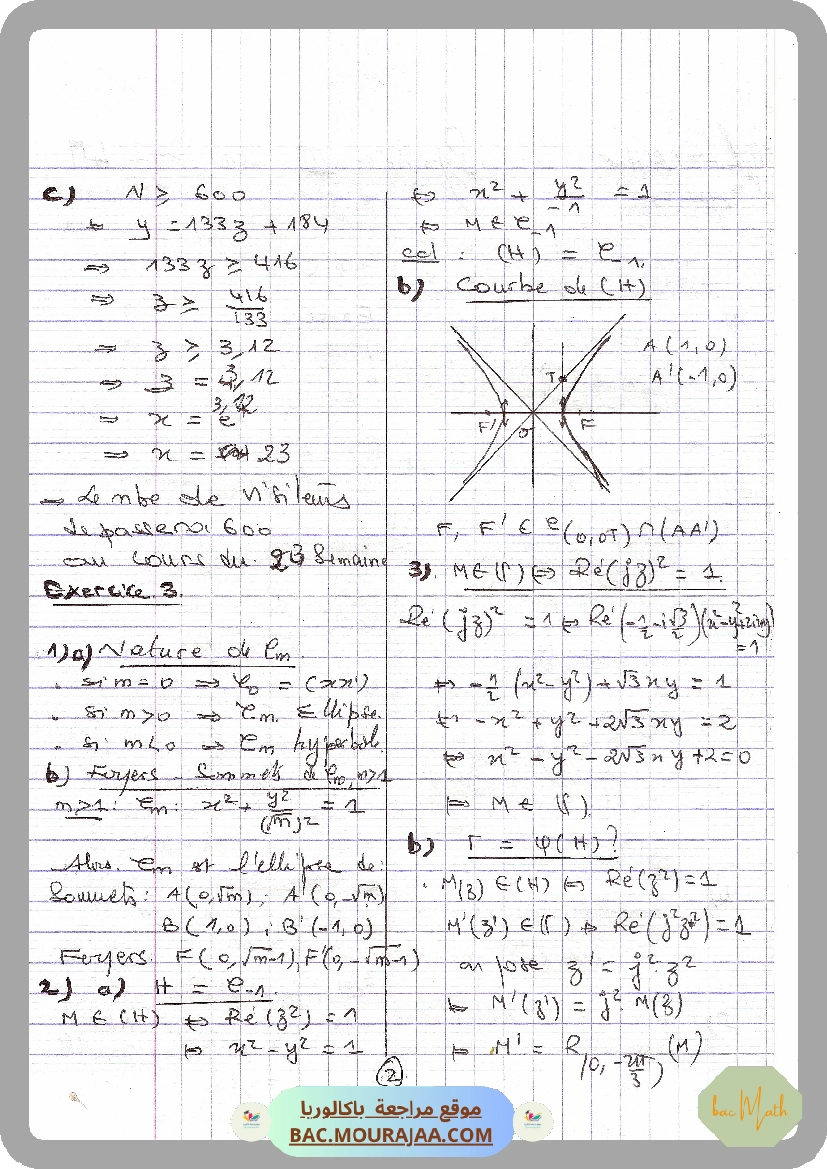 c) N ≥ 600
⇔ y = 133z + 184
⇒ 133z ≥ 416
⇒ z ≥ 416/133
⇒ z ≥ 3,12
⇒ z = 3,12
⇒ x = e^3,12
⇒ x = 23
→ Le nbe de visiteurs
depassera 600
au cours du 23 Semaine
Exercice 3.
1) a) Nature de ℓm
. si m = 0 ⇒ ℓ0 = (xx')
. si m > 0 ⇒ ℓm Ellipse.
. si m < 0 ⇒ ℓm hyperbole.
b) Foyers - Sommets de ℓm, m>1
m>1 : ℓm : x² + y²/(√m)² = 1
Alors ℓm est l'ellipse de:
Sommets: A(0,√m), A'(0,-√m)
B(1,0) ; B'(-1,0)
Foyers F(0,√m-1), F'(0,-√m-1)
2) a) H = ℓ-1.
M ∈ (H) ⇔ Ré(z²) = 1
⇔ x² - y² = 1
⇔ x² + y²/-1 = 1
⇔ M ∈ ℓ-1
ccl : (H) = ℓ-1.
b) Courbe de (H)
A(1,0)
A'(-1,0)
T
F' O F
F, F' ∈ ℓ(0,OT) ∩ (AA')
3). M ∈ (Γ) ⇔ Ré(jz)² = 1.
Ré(jz)² = 1 ⇔ Ré(-1/2 - i√3/2)(x²-y²+2ixy) = 1
⇔ -1/2 (x² - y²) + √3xy = 1
⇔ -x² + y² + 2√3xy = 2
⇔ x² - y² - 2√3xy + 2 = 0
⇔ M ∈ (Γ).
b) Γ = φ(H) ?
. M(z) ∈ (H) ⇔ Ré(z²) = 1
M'(z') ∈ (Γ) ⇔ Ré(j²z²) = 1
on pose z' = j².z²
⇔ M'(z') = j².M(z)
⇔ M' = R(0, -2π/3) (M)
2
موقع مراجعة باكالوريا
BAC.MOURAJAA.COM
bac Math